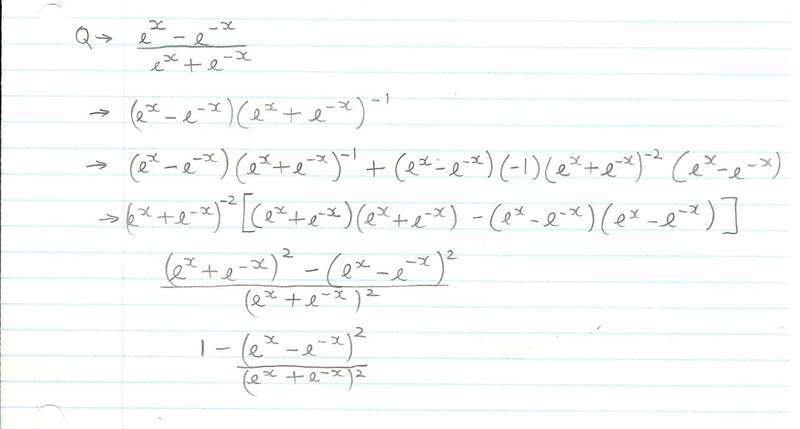 Q → (e^x − e^−x)/(e^x + e^−x)
→ (e^x − e^−x)(e^x + e^−x)^−1
→ (e^x − e^−x)(e^x + e^−x)^−1 + (e^x − e^−x)(−1)(e^x + e^−x)^−2 (e^x − e^−x)
→ (e^x + e^−x)^−2 [(e^x + e^−x)(e^x + e^−x) − (e^x − e^−x)(e^x − e^−x)]
((e^x + e^−x)^2 − (e^x − e^−x)^2)/(e^x + e^−x)^2
1 − (e^x − e^−x)^2/(e^x + e^−x)^2